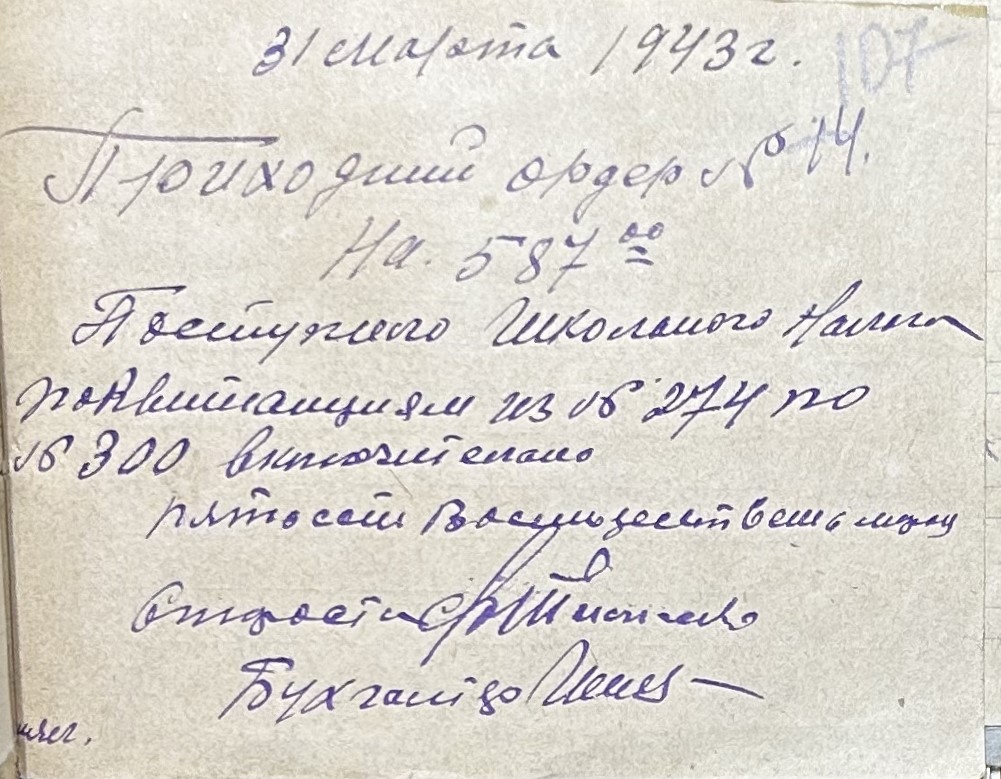 107
31 марта 1943 г.
Приходний ордер № 14.
На. 587 00
Поступило Школьного налога
по квитанциям из № 274 по
№ 300 включительно
пятьсот восемдесят семь марок
Староста
Бухгалтер